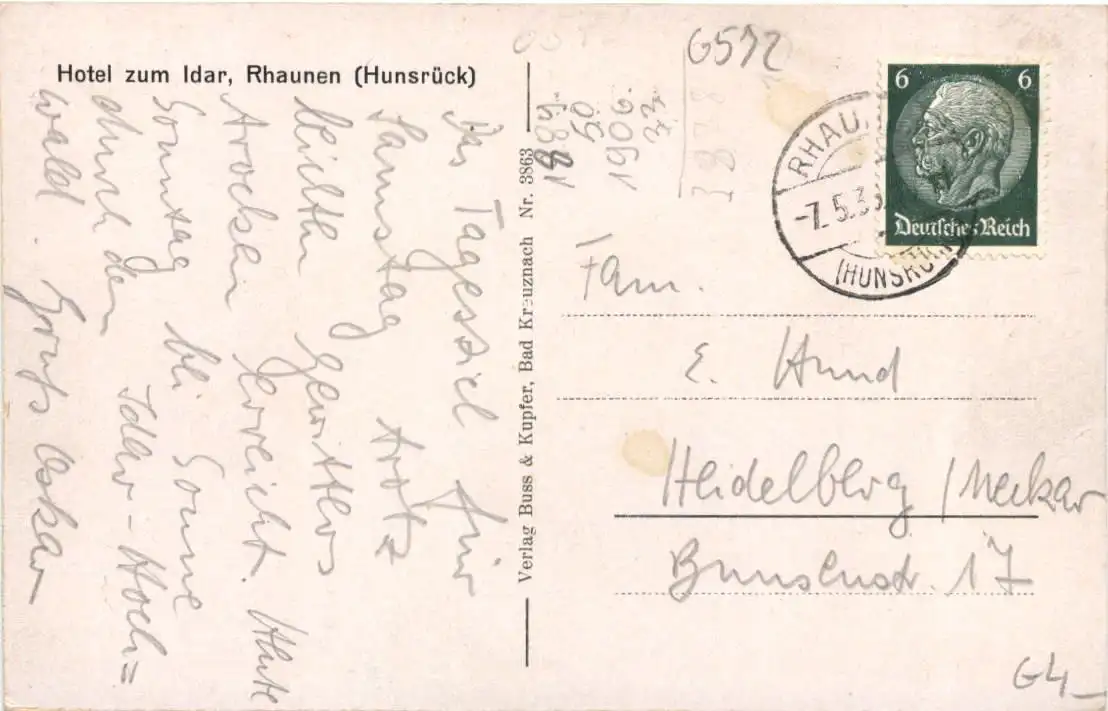 Hotel zum Idar, Rhaunen (Hunsrück)
Das Tagesziel für
Samstag trotz
leichten Gewitters
trocken erreicht. Heute
Sonntag bei Sonne
durch den Idar-Hoch=
wald. Gruß Oskar
Verlag Buss & Kupfer, Bad Kreuznach Nr. 3863
G572
6 6
Deutsches Reich
RHAU
-7.5.3
(HUNSRÜCK)
Fam.
E. Hund
Heidelberg /Neckar
Bunsenstr. 17
G4-